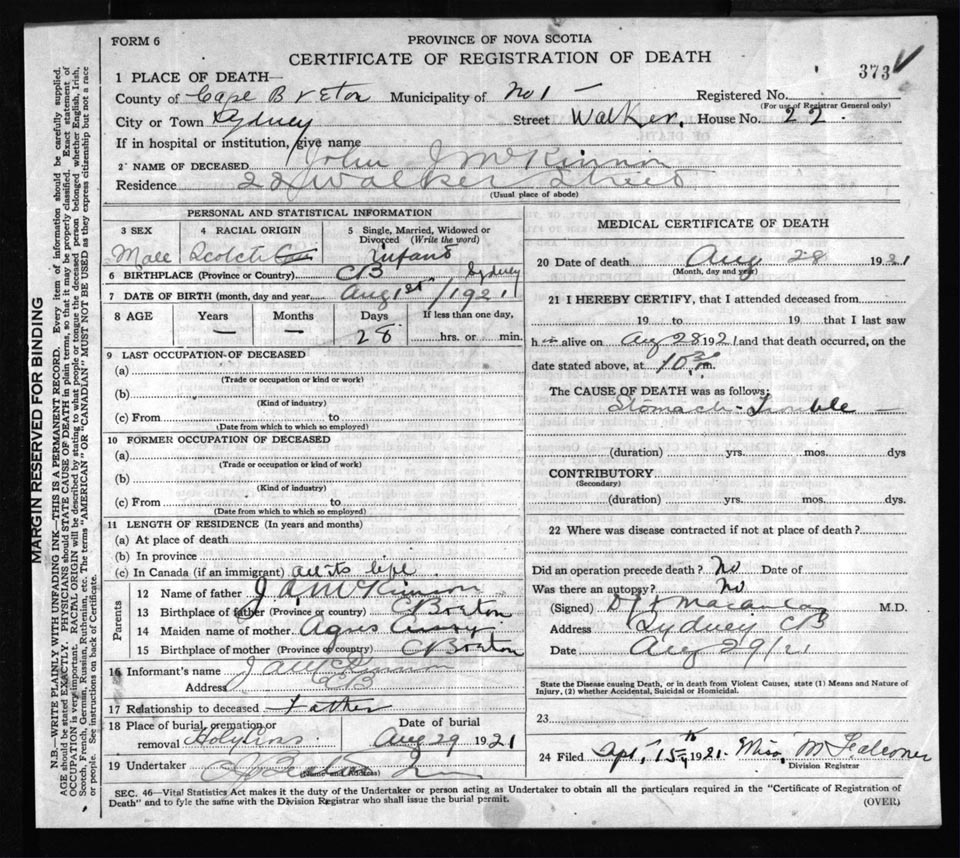 FORM 6
PROVINCE OF NOVA SCOTIA
CERTIFICATE OF REGISTRATION OF DEATH
373
1 PLACE OF DEATH—
County of Cape Breton Municipality of No 1 — Registered No.
(For use of Registrar General only)
City or Town Sydney Street Walker. House No. 22.
If in hospital or institution, give name
2 NAME OF DECEASED John J McKinnon
Residence 22 Walker Street
(Usual place of abode)
PERSONAL AND STATISTICAL INFORMATION
3 SEX
4 RACIAL ORIGIN
5 Single, Married, Widowed or Divorced (Write the word)
Male Scotch infant
6 BIRTHPLACE (Province or Country) CB Sydney
7 DATE OF BIRTH (month, day and year) Aug 1st / 1921
8 AGE Years Months Days If less than one day,
— — 28 hrs. or min.
9 LAST OCCUPATION OF DECEASED
(a)
(Trade or occupation or kind or work)
(b)
(Kind of industry)
(c) From to
(Date from which to which so employed)
10 FORMER OCCUPATION OF DECEASED
(a)
(Trade or occupation or kind of work)
(b)
(Kind of industry)
(c) From to
(Date from which to which so employed)
11 LENGTH OF RESIDENCE (In years and months)
(a) At place of death
(b) In province
(c) In Canada (if an immigrant) all its life
Parents
12 Name of father J A McKinnon
13 Birthplace of father (Province or country) C Breton
14 Maiden name of mother Agnes
15 Birthplace of mother (Province or country) C Breton
16 Informant's name J A McKinnon
Address CB
17 Relationship to deceased Father
18 Place of burial, cremation or Date of burial
removal Holy Cross Aug 29 1921
19 Undertaker
(Name and Address)
MEDICAL CERTIFICATE OF DEATH
20 Date of death Aug 28 1921
(Month, day and year)
21 I HEREBY CERTIFY, that I attended deceased from
19 to 19 that I last saw
h alive on Aug 28 1921 and that death occurred, on the
date stated above, at 10 m.
The CAUSE OF DEATH was as follows:
Stomach - Trouble —
(duration) yrs. mos. dys
CONTRIBUTORY
(Secondary)
(duration) yrs. mos. dys.
22 Where was disease contracted if not at place of death?
Did an operation precede death? No Date of
Was there an autopsy? No
(Signed) Macaulay M.D.
Address Sydney CB
Date Aug 29/21
State the Disease causing Death, or in death from Violent Causes, state (1) Means and Nature of
Injury, (2) whether Accidental, Suicidal or Homicidal.
23
24 Filed Apr. 15th 1921. Miss M Falconer
Division Registrar
SEC. 46—Vital Statistics Act makes it the duty of the Undertaker or person acting as Undertaker to obtain all the particulars required in the "Certificate of Registration of
Death" and to fyle the same with the Division Registrar who shall issue the burial permit.
(OVER)
MARGIN RESERVED FOR BINDING
N.B.—WRITE PLAINLY WITH UNFADING INK—THIS IS A PERMANENT RECORD. Every item of information should be carefully supplied.
AGE should be stated EXACTLY. PHYSICIANS should STATE CAUSE OF DEATH in plain terms, so that it may be properly classified. Exact statement of
OCCUPATION is very important. RACIAL ORIGIN will be described by stating to what people or tongue the deceased person belonged whether English, Irish,
Scotch, French, German, Russian, Ruthenian, etc. The terms "AMERICAN" OR "CANADIAN" MUST NOT BE USED as they express citizenship but not a race
or people. See instructions on back of Certificate.